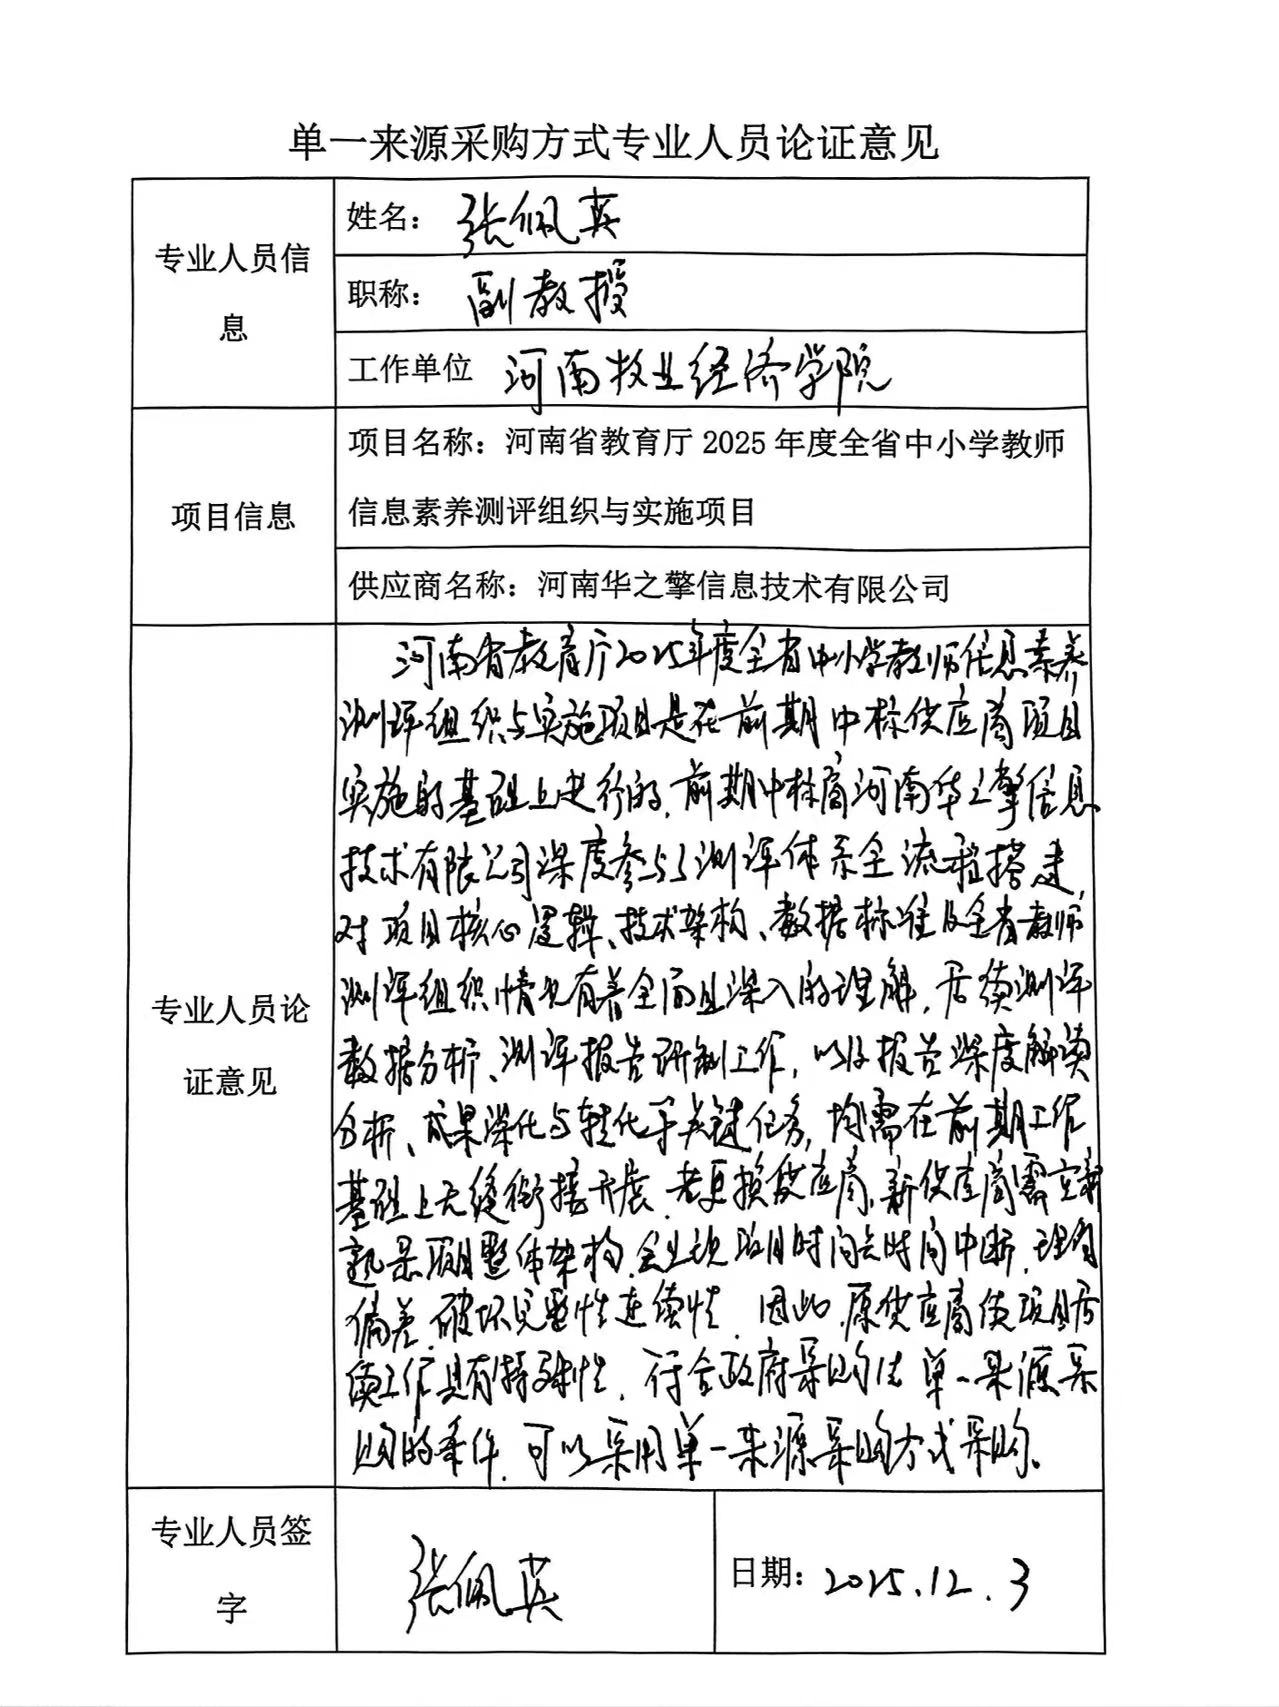 单一来源采购方式专业人员论证意见
专业人员信
息
姓名：张佩英
职称：副教授
工作单位 河南牧业经济学院
项目信息
项目名称：河南省教育厅 2025 年度全省中小学教师
信息素养测评组织与实施项目
供应商名称：河南华之擎信息技术有限公司
专业人员论
证意见
河南省教育厅2025年度全省中小学教师信息素养
测评组织与实施项目是在前期中标供应商项目
实施的基础上进行的，前期中标商河南华之擎信息
技术有限公司深度参与了测评体系全流程搭建，
对项目核心逻辑、技术架构、数据标准及全省教师
测评组织情况有着全面且深入的理解，后续测评
数据分析、测评报告研制工作，以及报告深度解读
分析、成果深化与转化等关键任务，均需在前期工作
基础上无缝衔接开展。若更换供应商，新供应商需重新
熟悉项目整体架构，会出现项目时间长时间中断，理解
偏差，破坏完整性连续性。因此，原供应商使项目后
续工作具有特殊性，符合政府采购法单一来源采
购的条件，可以采用单一来源采购方式采购。
专业人员签
字
张佩英
日期：2025.12.3